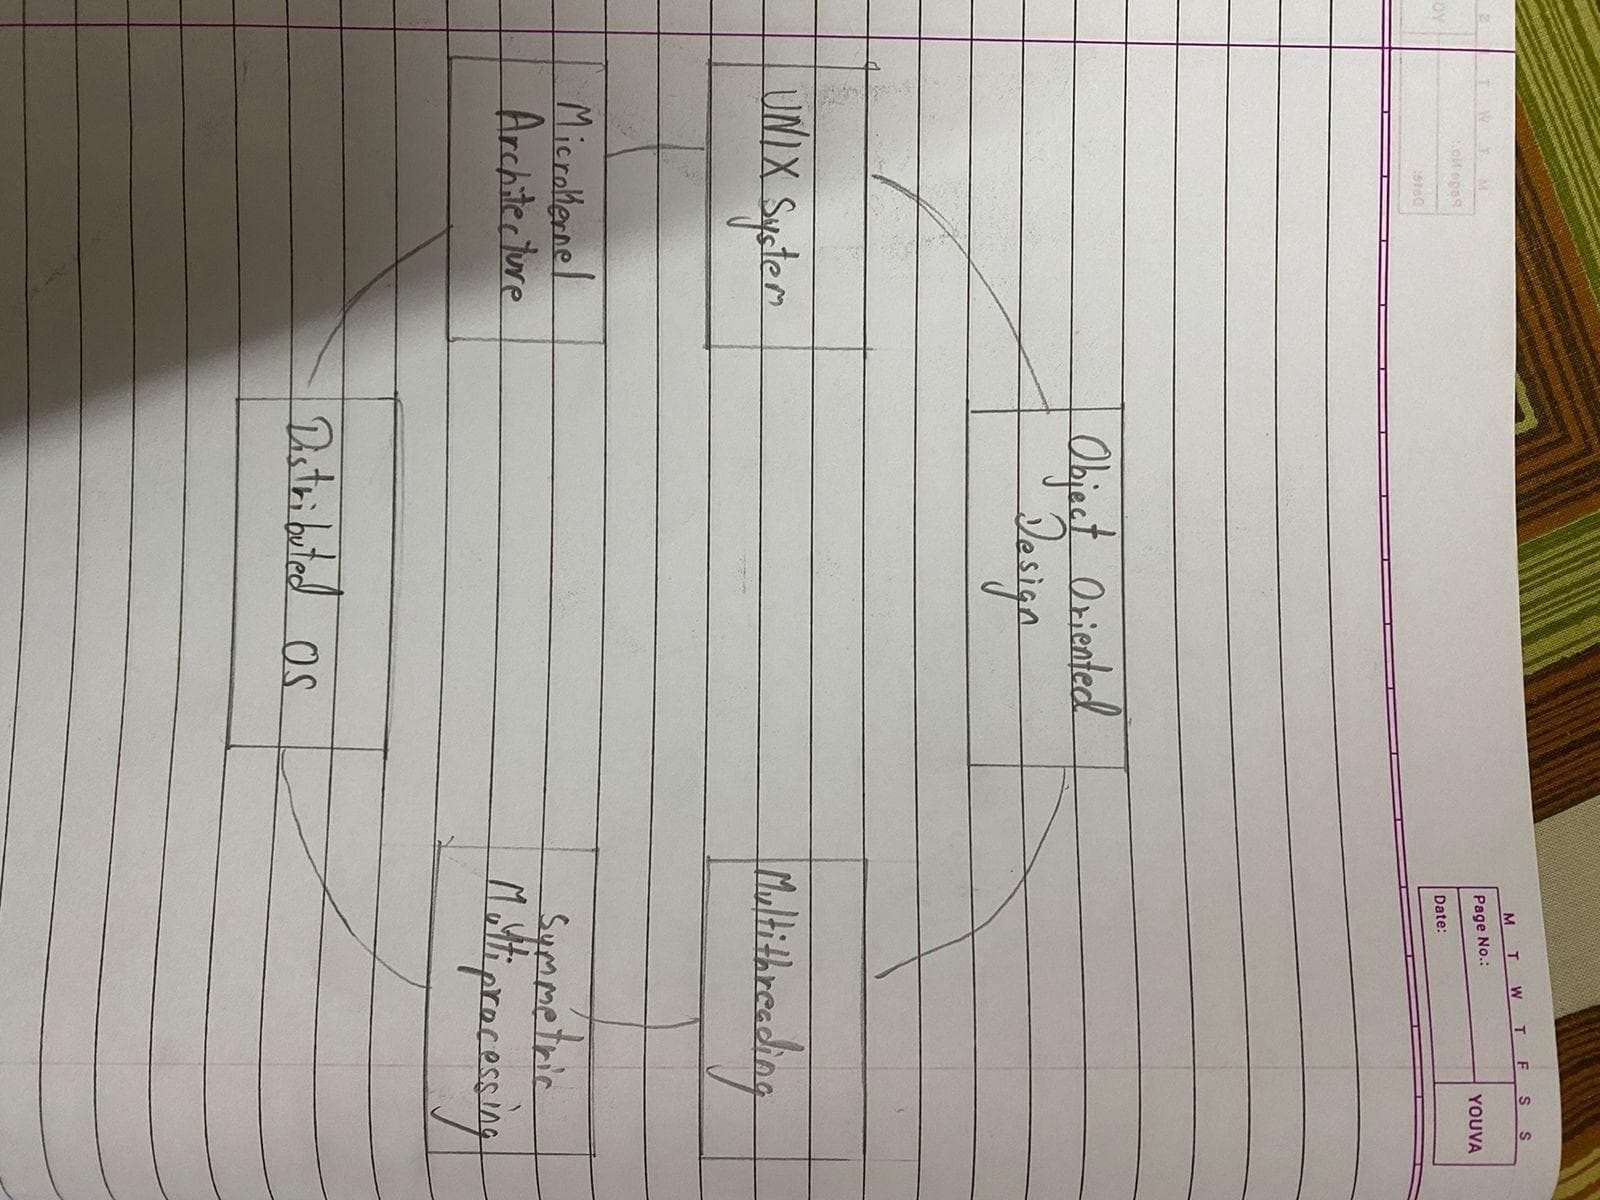 M T W T F S S
Page No.:
YOUVA
Date:
Object Oriented
Design
UNIX System
Multithreading
MicroKernel
Architecture
Symmetric
Multiprocessing
Distributed OS